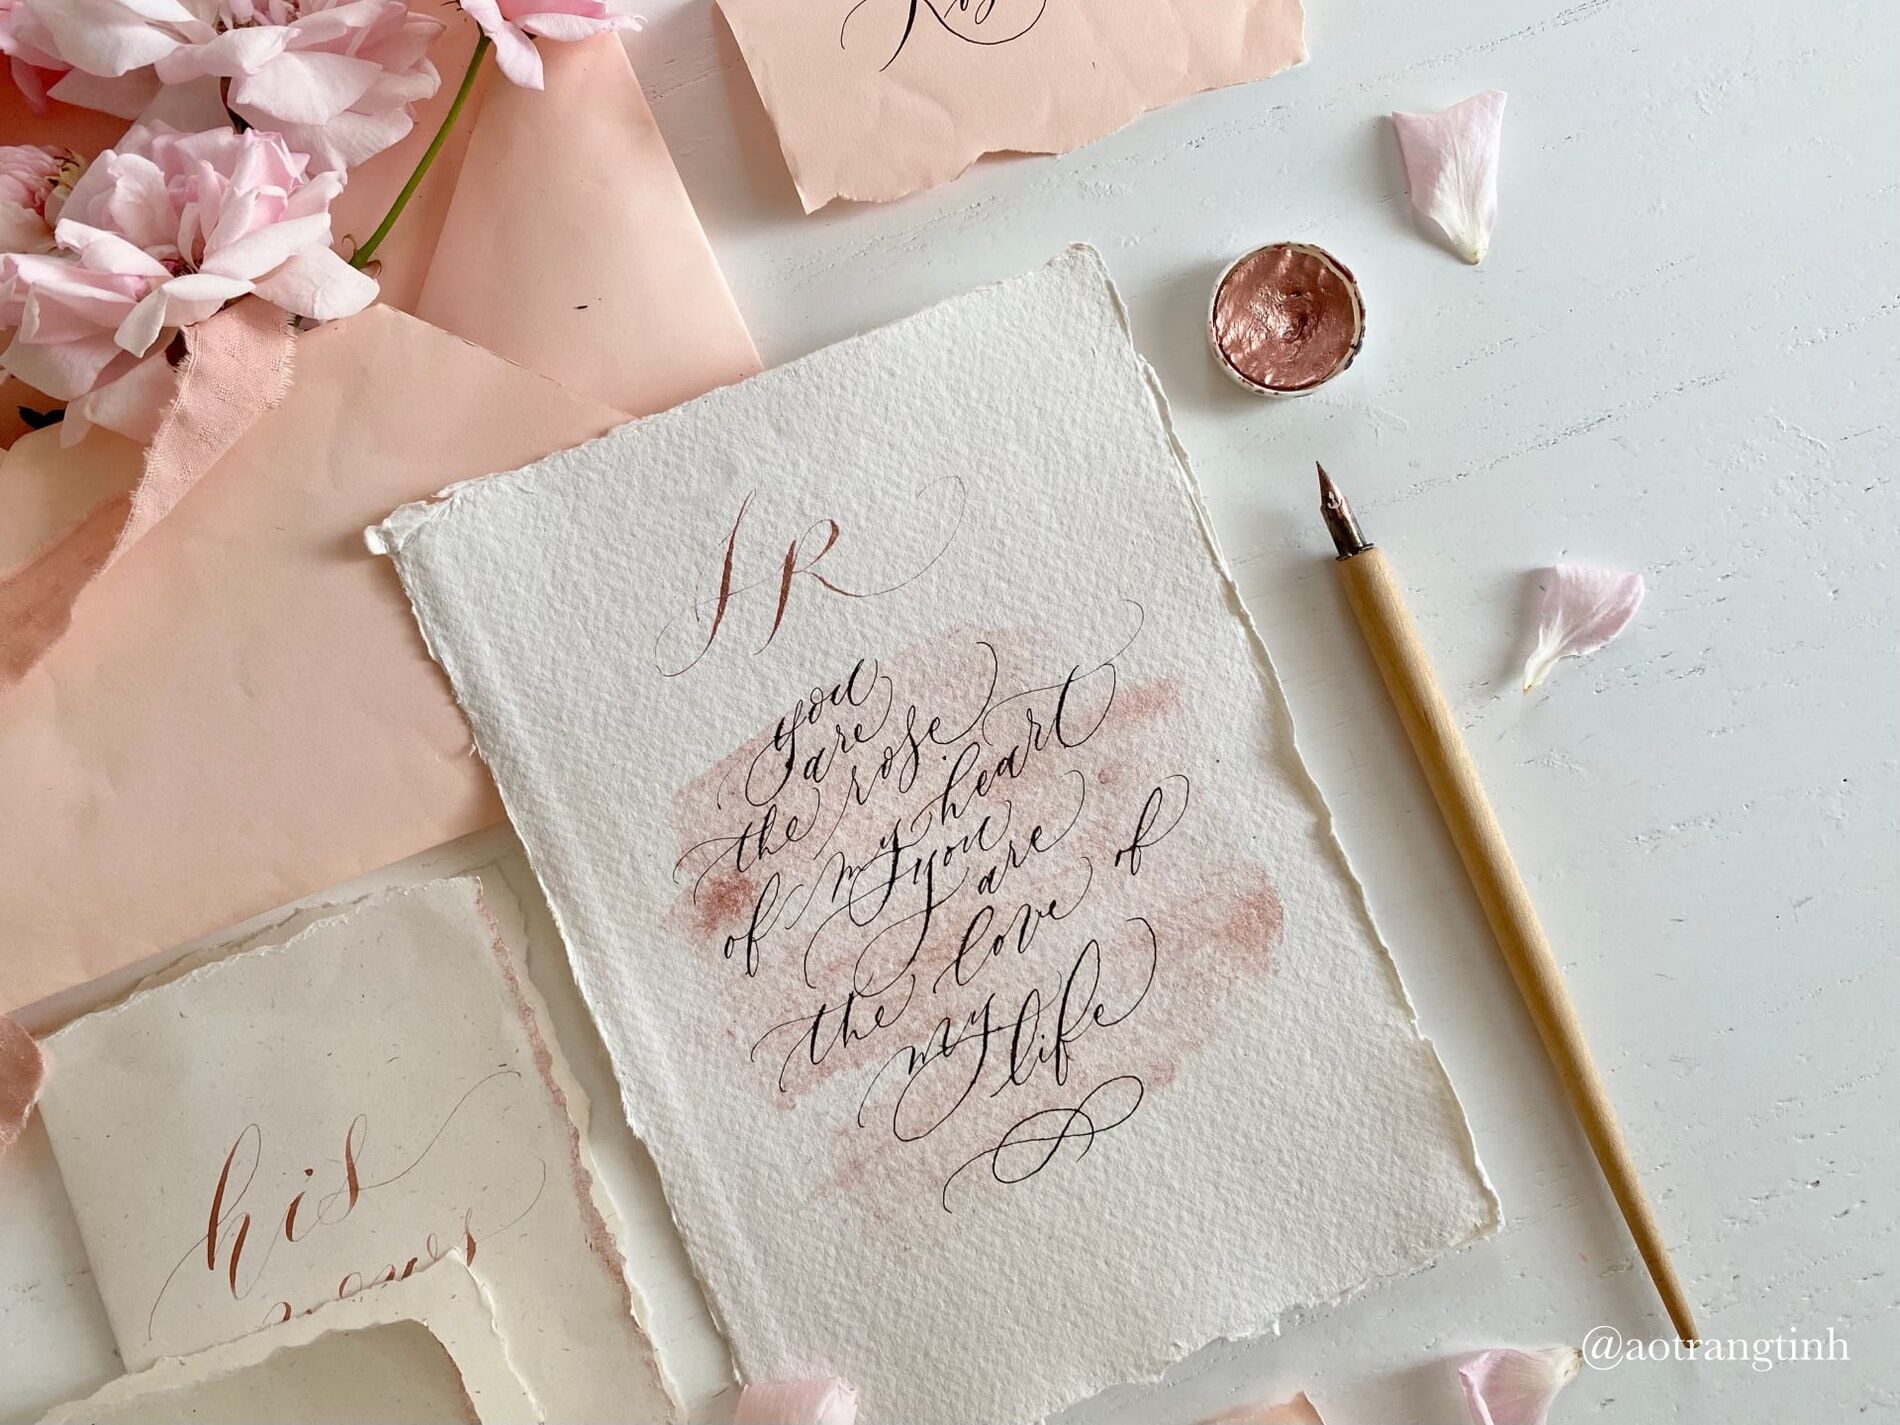 you
are
the rose
of my heart
you
are
the love of
my life
his
vows
@aotrangtinh